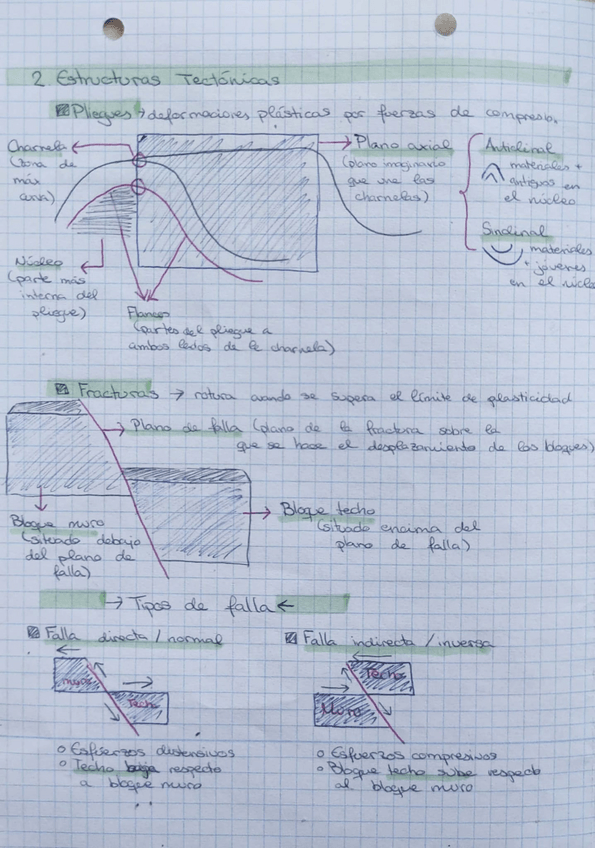 2 Estructuras Tectónicas
Pliegues → deformaciones plásticas por fuerzas de compresión.
Charnela
(zona de
más
curva)
Plano axial
(plano imaginario
que une las
charnelas)
Anticlinal
materiales +
antiguos en
el núcleo
Sinclinal
materiales
+ jóvenes
en el núcleo
Núcleo
(parte más
interna del
pliegue)
Flancos
(partes del pliegue a
ambos lados de la charnela)
Fracturas → rotura cuando se supera el límite de plasticidad
Plano de falla (plano de la fractura sobre la
que se hace el desplazamiento de los bloques)
Bloque muro
(situado debajo
del plano de
falla)
Bloque techo
(situado encima del
plano de falla)
→ Tipos de falla ←
Falla directa / normal
muro
Techo
o Esfuerzos distensivos
o Techo baja respecto
a bloque muro
Falla indirecta / inversa
Techo
Muro
o Esfuerzos compresivos
o Bloque techo sube respecto
al bloque muro